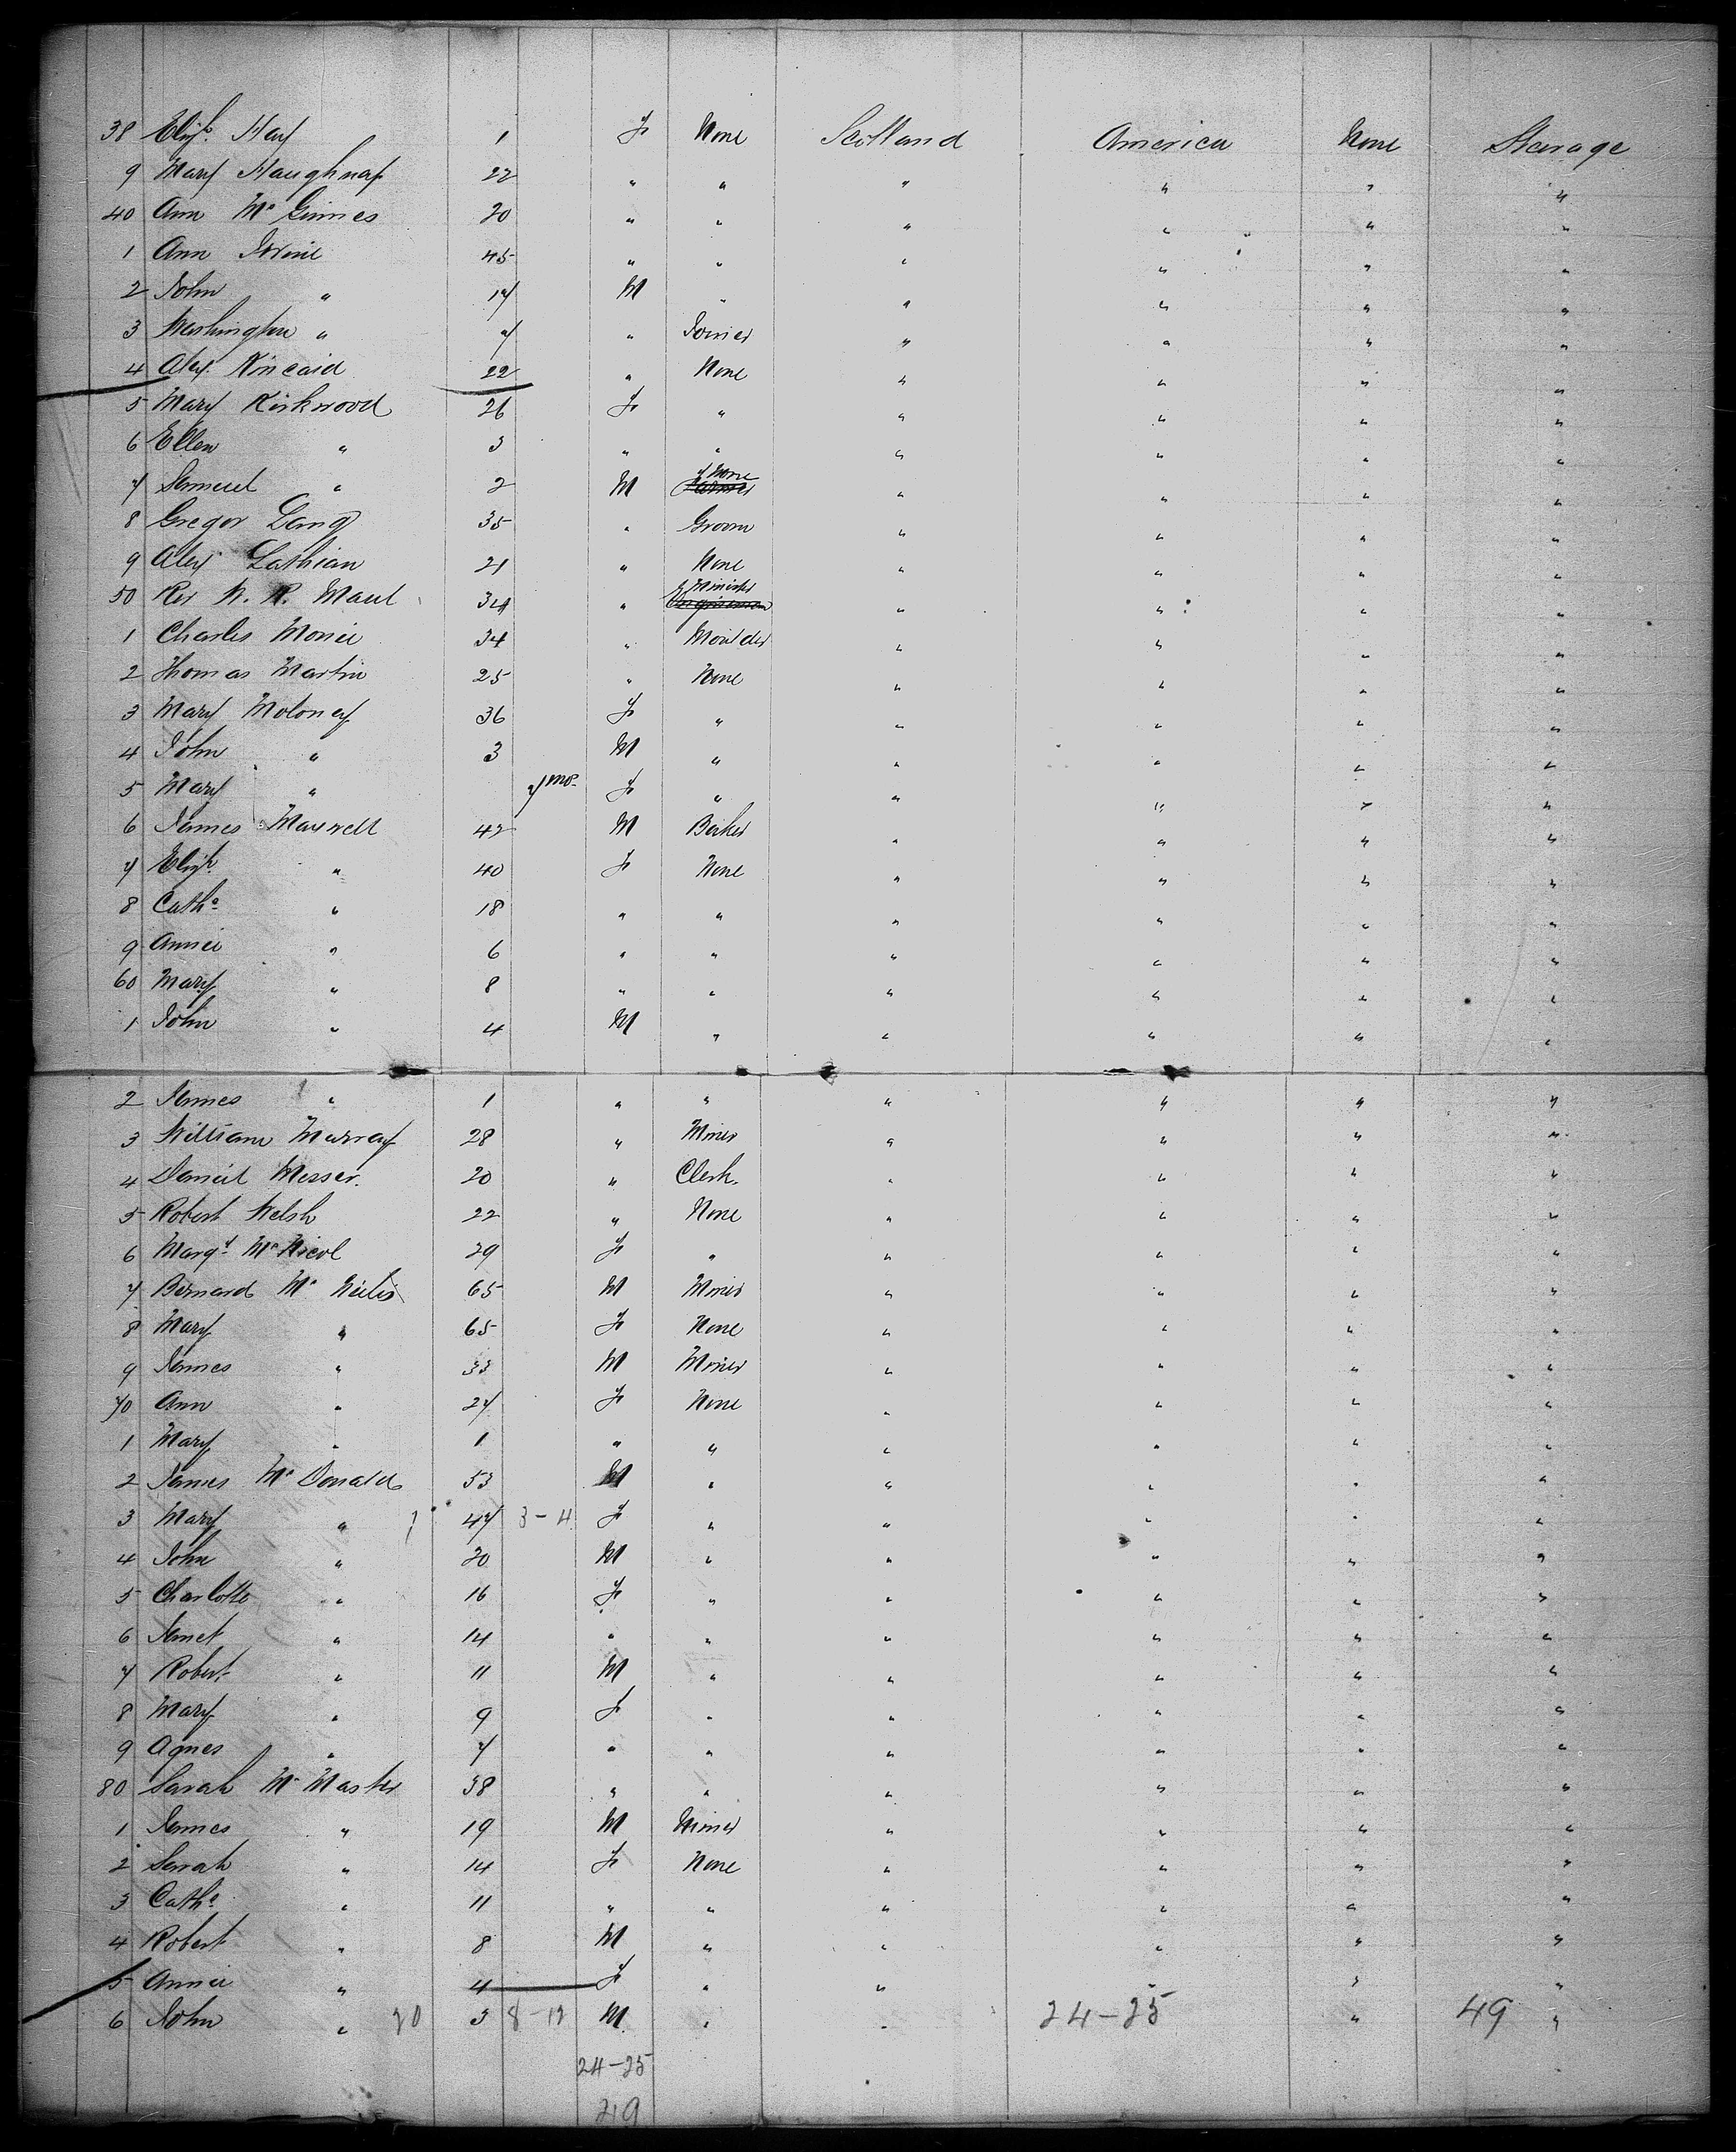 38 Elizh. Hay 1 F None Scotland America None Steerage
9 Mary Haughnay 22 " " " " " "
40 Ann Mc Ginnes 20 " " " " " "
1 Ann Irvine 45 " " " " " "
2 John " 17 M " " " " "
3 Washington " 7 " Joiner " " " "
4 Alex Kincaid 22 " None " " " "
5 Mary Kirkwood 26 F " " " " "
6 Ellen " 3 " " " " " "
7 Samuel " 2 M None " " " "
8 Gregor Lang 35 " Groom " " " "
9 Alex Lathian 21 " None " " " "
50 Rev W. R. Maul 34 " Minister " " " "
1 Charles Monie 34 " Moulder " " " "
2 Thomas Martin 25 " None " " " "
3 Mary Moloney 36 F " " " " "
4 John " 3 M " " " " "
5 Mary " 7 mos. F " " " " "
6 James Maxwell 42 M Baker " " " "
7 Elizh. " 40 F None " " " "
8 Catha " 18 " " " " " "
9 Annie " 6 " " " " " "
60 Mary " 8 " " " " " "
1 John " 4 M " " " " "
2 James " 1 " " " " " "
3 William Murray 28 " Miner " " " "
4 Daniel Messer. 20 " Clerk. " " " "
5 Robert Welsh 22 " None " " " "
6 Margt Mc Nicol 29 F " " " " "
7 Bernard Mc 65 M Miner " " " "
8 Mary " 65 F None " " " "
9 James " 33 M Miner " " " "
70 Ann " 27 F None " " " "
1 Mary " 1 " " " " " "
2 James Mc Donald 53 M " " " " "
3 Mary " 47 3-4 F " " " " "
4 John " 20 M " " " " "
5 Charlotte " 16 F " " " " "
6 Janet " 14 " " " " " "
7 Robert " 11 M " " " " "
8 Mary " 9 F " " " " "
9 Agnes " 7 " " " " " "
80 Sarah Mc Master 38 " " " " " "
1 James " 19 M Miner " " " "
2 Sarah " 14 F None " " " "
3 Catha " 11 " " " " " "
4 Robert " 8 M " " " " "
5 Annie " 4 F " " " " "
6 John " 20 3 8-12 M. " " 24-25 " 49 "
24-25